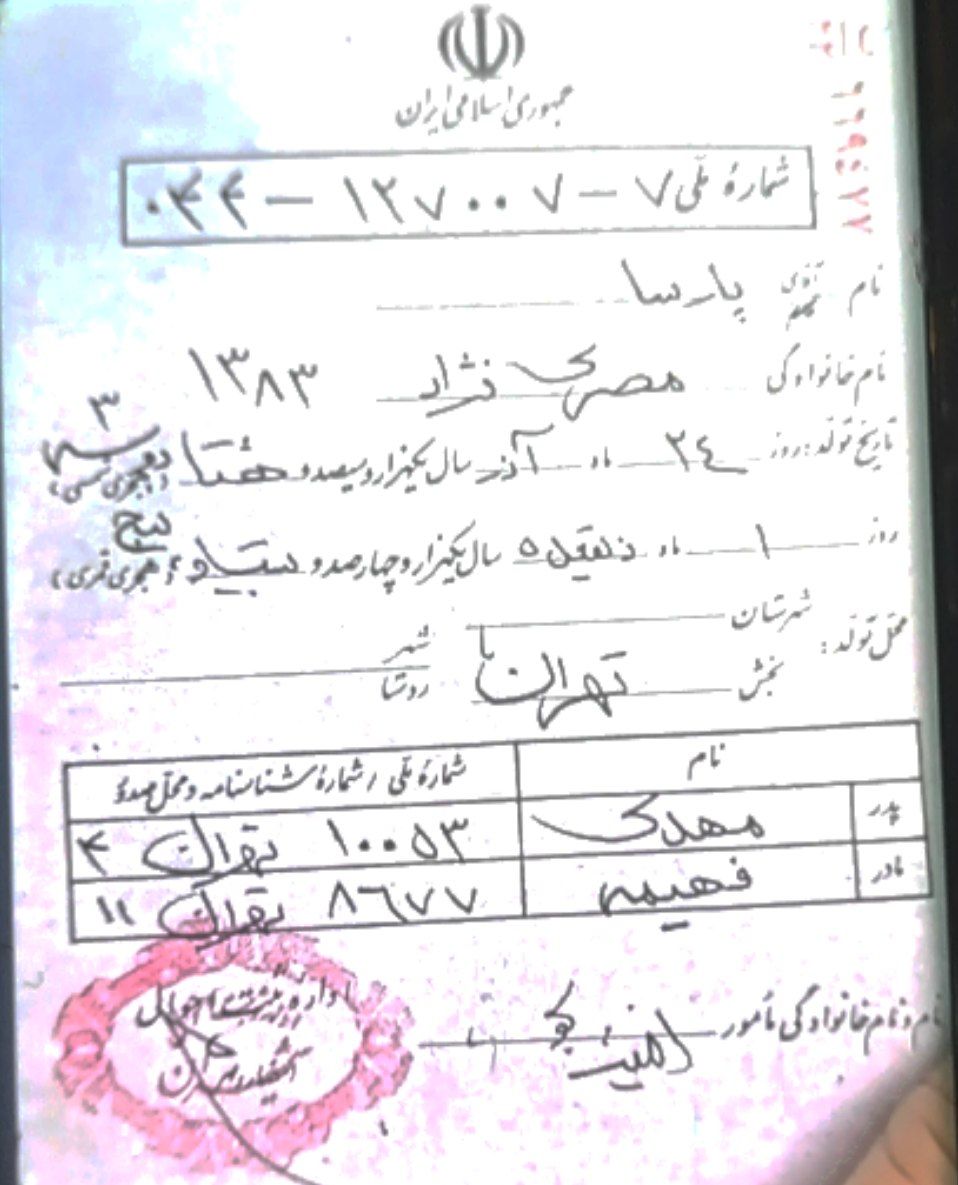 جمهوری اسلامی ایران
شمارهٔ ملّی ۷ - ۱۲۷۰۰۷ - ۰۴۴
نام آقای پارسا
نام خانوادگی مصری نژاد ۱۳۸۳
تاریخ تولد: روز ۲۴ ماه آذر سال یکهزار و سیصد و هشتاد و سه ۳ (هجری شمسی)
روز ۱ ماه ذیقعده سال یکهزار و چهارصد و بیست و پنج (هجری قمری)
محل تولد: شهرستان
بخش تهران شهر
روستا
نام شمارهٔ ملّی / شمارهٔ شناسنامه و محل صدور
پدر مهدی ۱۰۰۵۳ تهران ۴
مادر فهیمه ۸۶۷۷ تهران ۱۱
نام و نام خانوادگی مأمور
اداره ثبت احوال